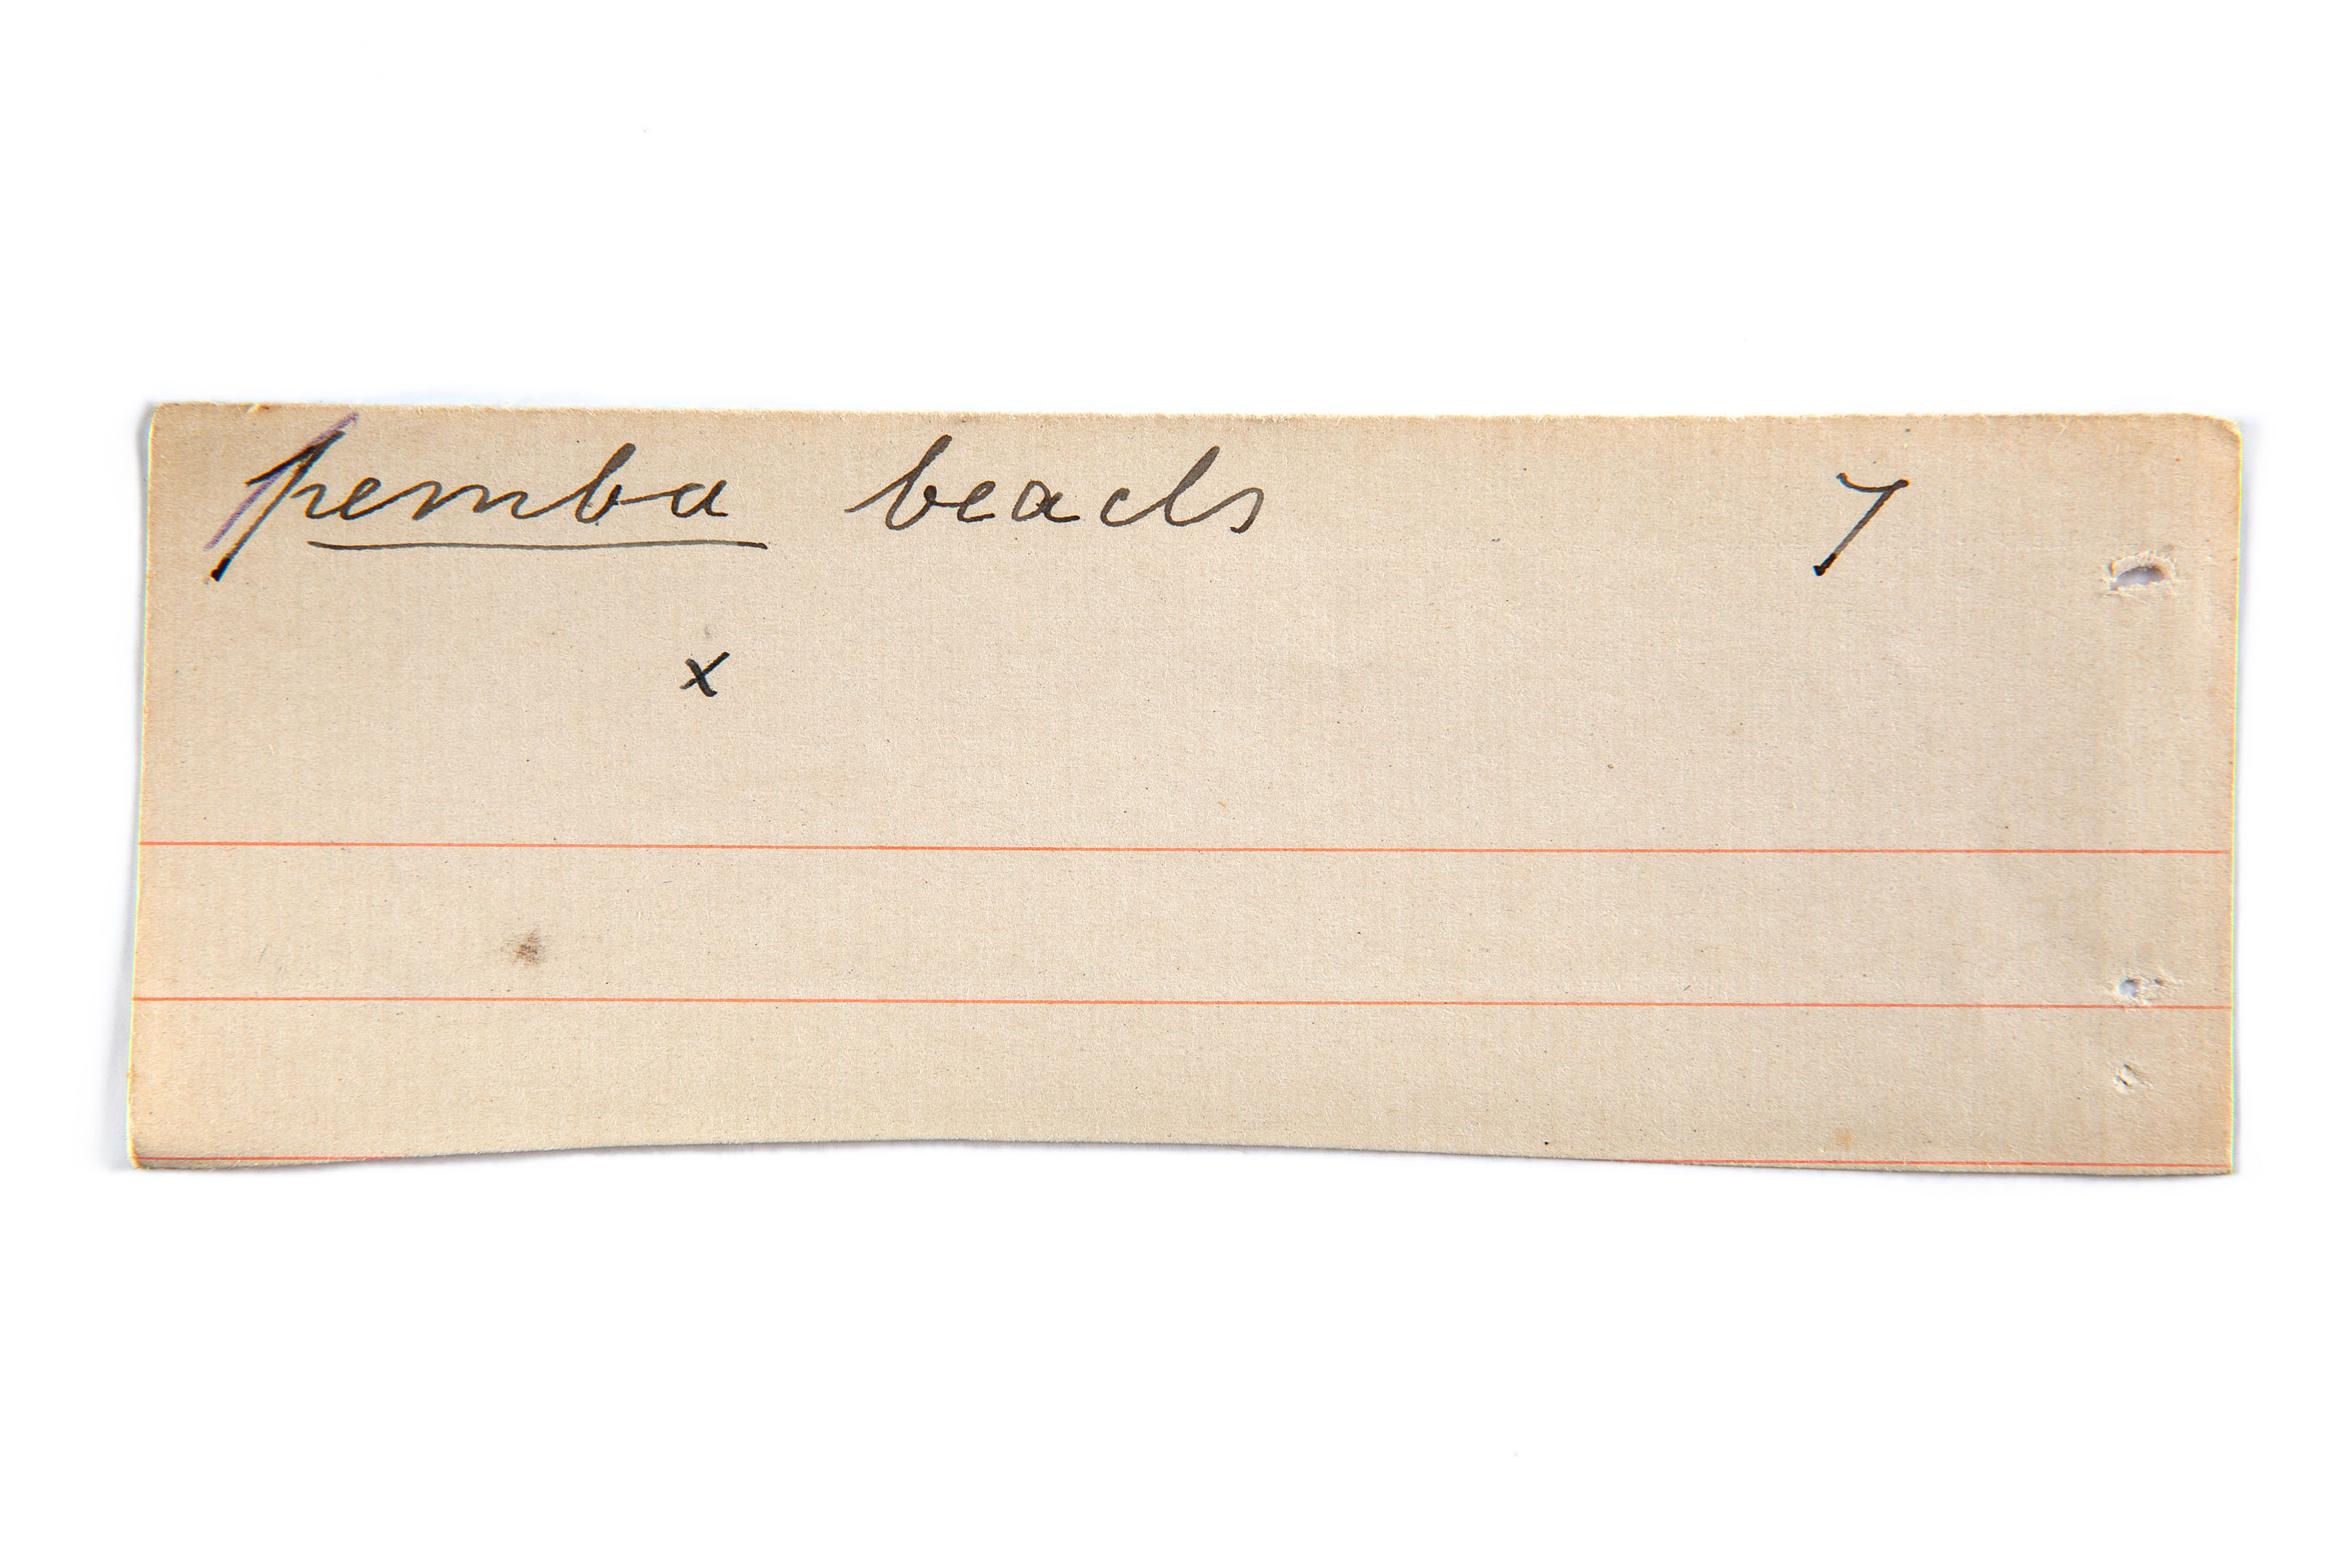 pemba beads 7
x